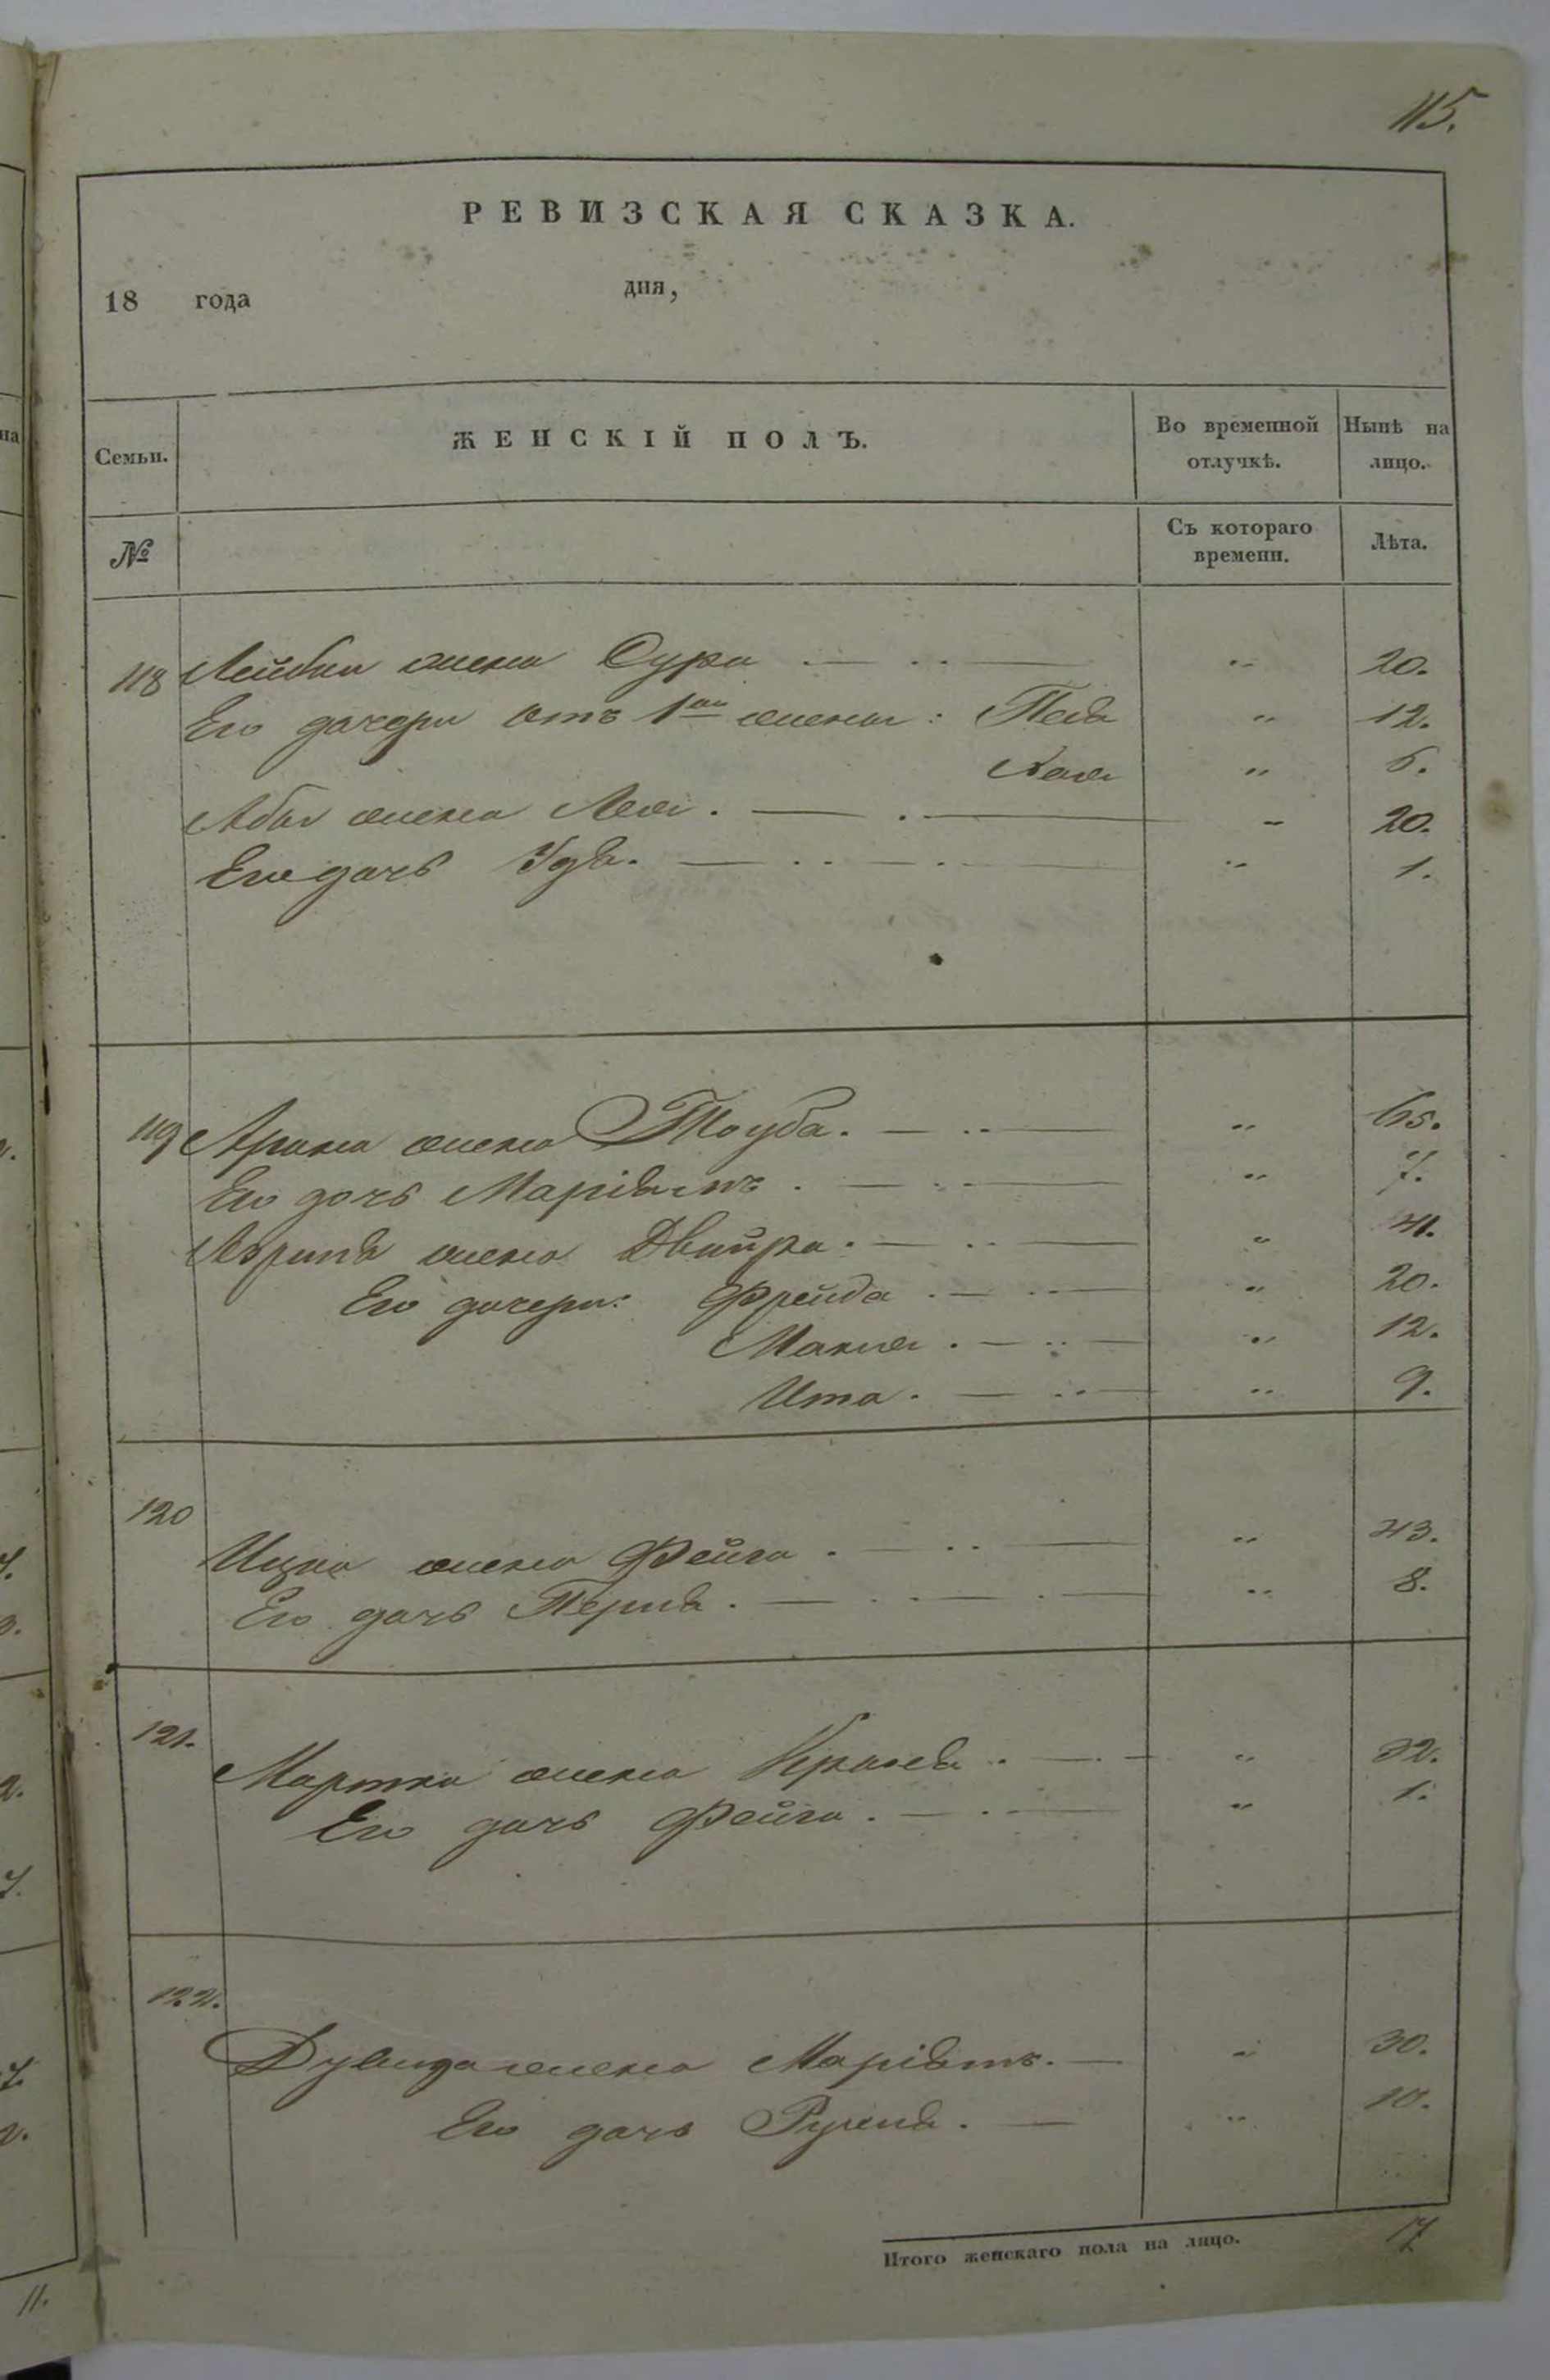 115.
РЕВИЗСКАЯ СКАЗКА.
18 года дня,
Семьи. ЖЕНСКІЙ ПОЛЪ. Во временной отлучкѣ. Нынѣ на лицо.
№ Съ котораго времени. Лѣта.
118 Лейбки жена Сура . — .. — " 20.
Его дочери отъ 1ой жены: Песя " 12.
Хая " 6.
Абы жена Лея . — . — " 20.
Его дочь Удя. — .. — . — " 1.
119 Арона жена Тоуба. — .. — " 65.
Его дочь Маріямъ . — .. — " 7.
жена Двейра. — .. — " 41.
Его дочери: Фрейда . — .. — " 20.
Маня . — .. — " 12.
Ита. — .. — " 9.
120 Ицка жена Фейга . — .. — " 43.
Его дочь Перля. — . . — . — " 8.
121. Мортка жена . — . — " 32.
Его дочь Фейга. — . — " 1.
122. Дувида жена Маріямъ. — " 30.
Его дочь . — " 10.
Итого женскаго пола на лицо. 17
11.